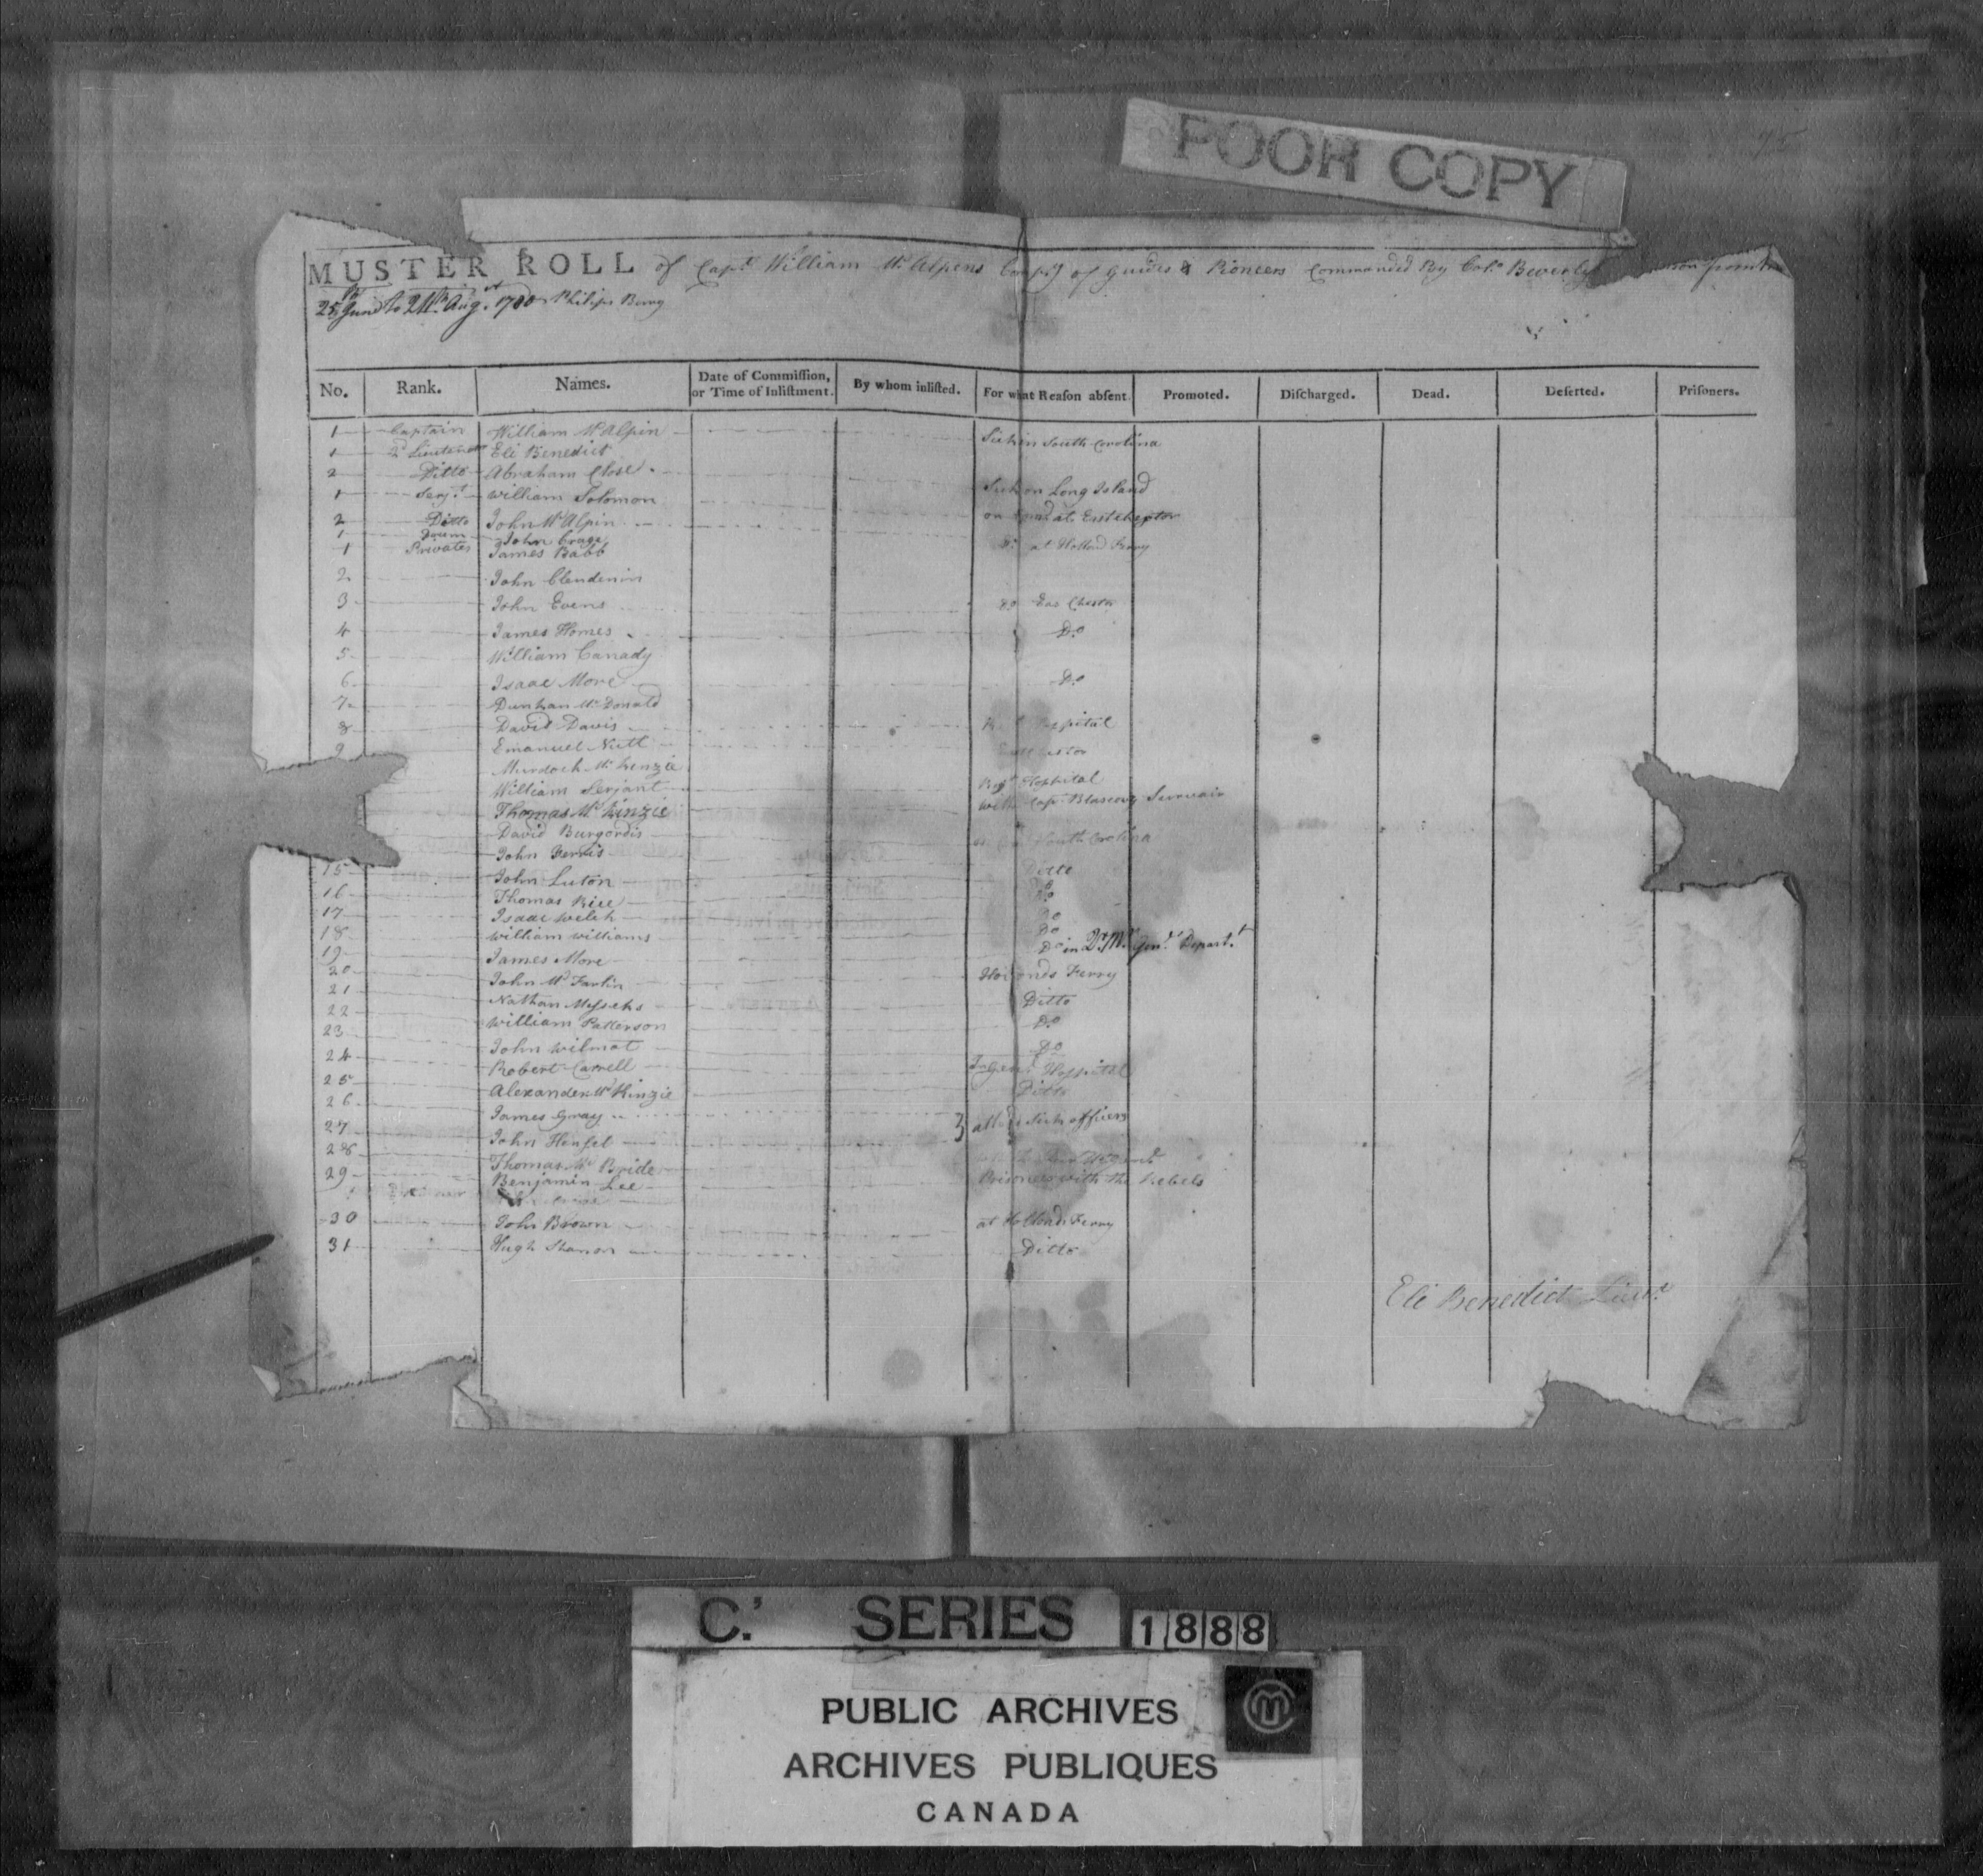 POOR COPY
75
MUSTER ROLL of Capt. William Mc Alpens Compy of Guides & Pioneers Commanded By Colo. Beverly
25th June to 24th Aug. 1780 Philips Berry
No. Rank. Names. Date of Commission, or Time of Inlistment. By whom inlisted. For what Reason absent. Promoted. Discharged. Dead. Deserted. Prisoners.
1 Captain William McAlpin Sick in South Carolina
1 2d Lieutenant Eli Benedict
2 Ditto Abraham Close
1 Serjt. William Solomon Sick on Long Island
2 Ditto John McAlpin on at
1 John
1 Privates James Babb Do. at Holland Ferry
2 John Clendenin
3 John Evens Do Eas Chester
4 James Homes Do
5 William Canady
6 Isaac More Do
7 Dunkan Mc Donald
8 David Davis
9 Emanuel Nutt
Murdock McKenzie
William Serjant Regt Hospital
Thomas McKinzie with Capt. Servain
David Burgordis South Carolina
John Ferris
15 John Luton Ditto
16 Thomas Rice Do
17 Isaac Welch Do
18 William Williams Do
19 James More Do in Qr. Mr. Genl. Depart.t
20 John McFarlin Ferry
21 Nathan Ditto
22 William Patterson Do
23 John Wilmot Do
24 Robert Carrell In Genl. Hospital
25 Alexander McKinzie Ditto
26 James Gway
27 John Hensel Sick officers
28 Thomas Mc Bride
29 Benjamin Lee Prisoners with the Rebels
30 John Brown at Hollands Ferry
31 Hugh Shanon Ditto
Eli Benedict Lieut.
C.' SERIES 1888
PUBLIC ARCHIVES
ARCHIVES PUBLIQUES
CANADA